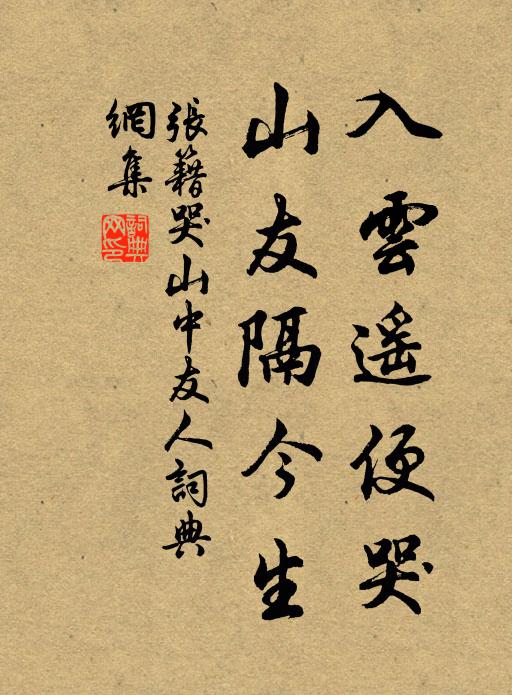 入雲遥便哭
山友隔今生
張籍哭山中友人詞典
網集
詞典
网印